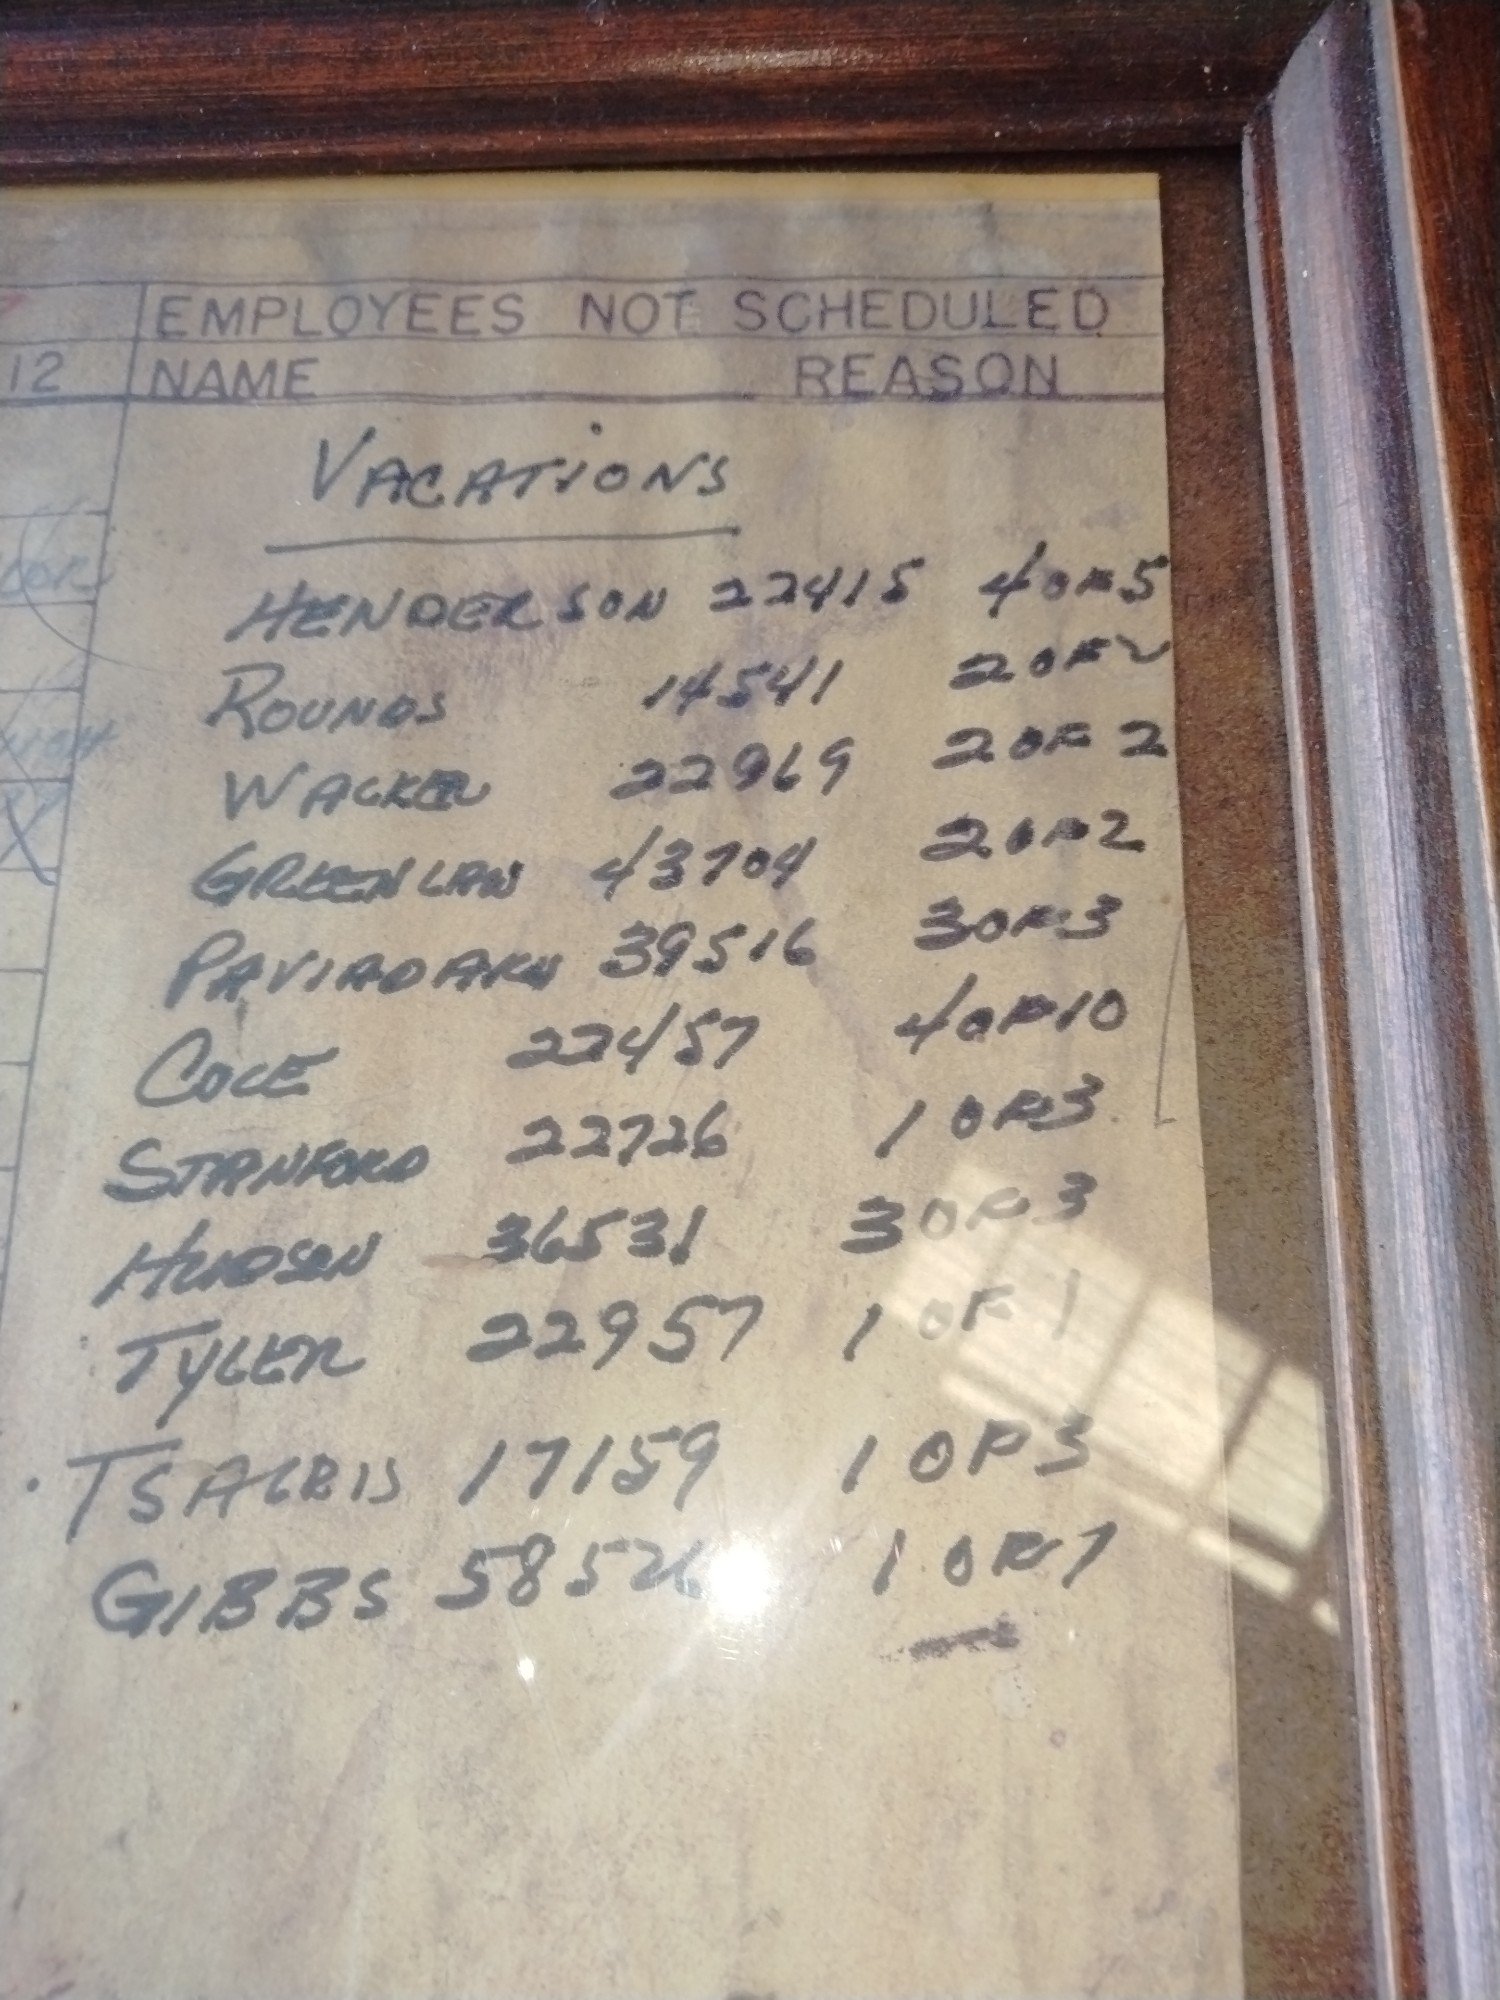 EMPLOYEES NOT SCHEDULED
12 NAME REASON
VACATIONS
HENDERSON 22415 4 OF 5
ROUNDS 14541 2 OF 2
WACKER 22969 2 OF 2
GREENLAW 43704 2 OF 2
39516 3 OF 3
COLE 22457 4 OF 10
STANFORD 22726 1 OF 3
HUDSON 36531 3 OF 3
TYLER 22957 1 OF 1
17159 1 OF 3
GIBBS 58526 1 OF 1